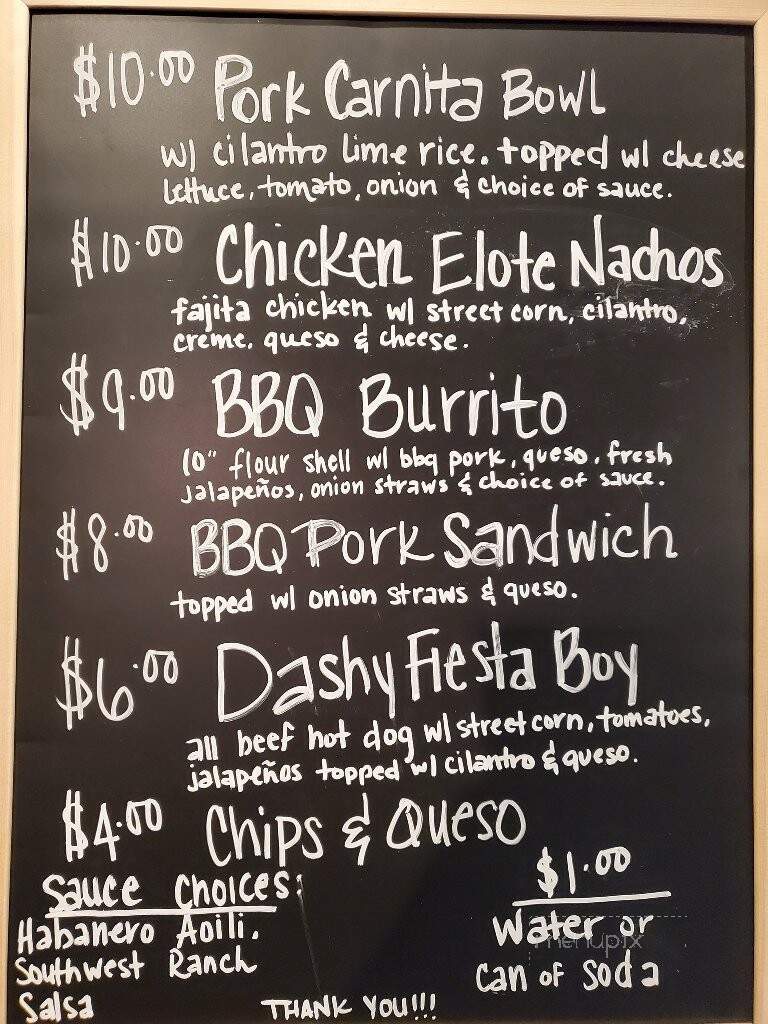 $10.00 Pork Carnita Bowl
w/ cilantro lime rice. topped w/ cheese
lettuce, tomato, onion & choice of sauce.
$10.00 Chicken Elote Nachos
fajita chicken w/ street corn, cilantro,
creme, queso & cheese.
$9.00 BBQ Burrito
10" flour shell w/ bbq pork, queso, fresh
jalapeños, onion straws & choice of sauce.
$8.00 BBQ Pork Sandwich
topped w/ onion straws & queso.
$6.00 Dashy Fiesta Boy
all beef hot dog w/ street corn, tomatoes,
jalapeños topped w/ cilantro & queso.
$4.00 Chips & Queso
Sauce Choices:
Habanero Aoili.
Southwest Ranch
Salsa
$1.00
Water or
can of soda
menupix
THANK YOU!!!